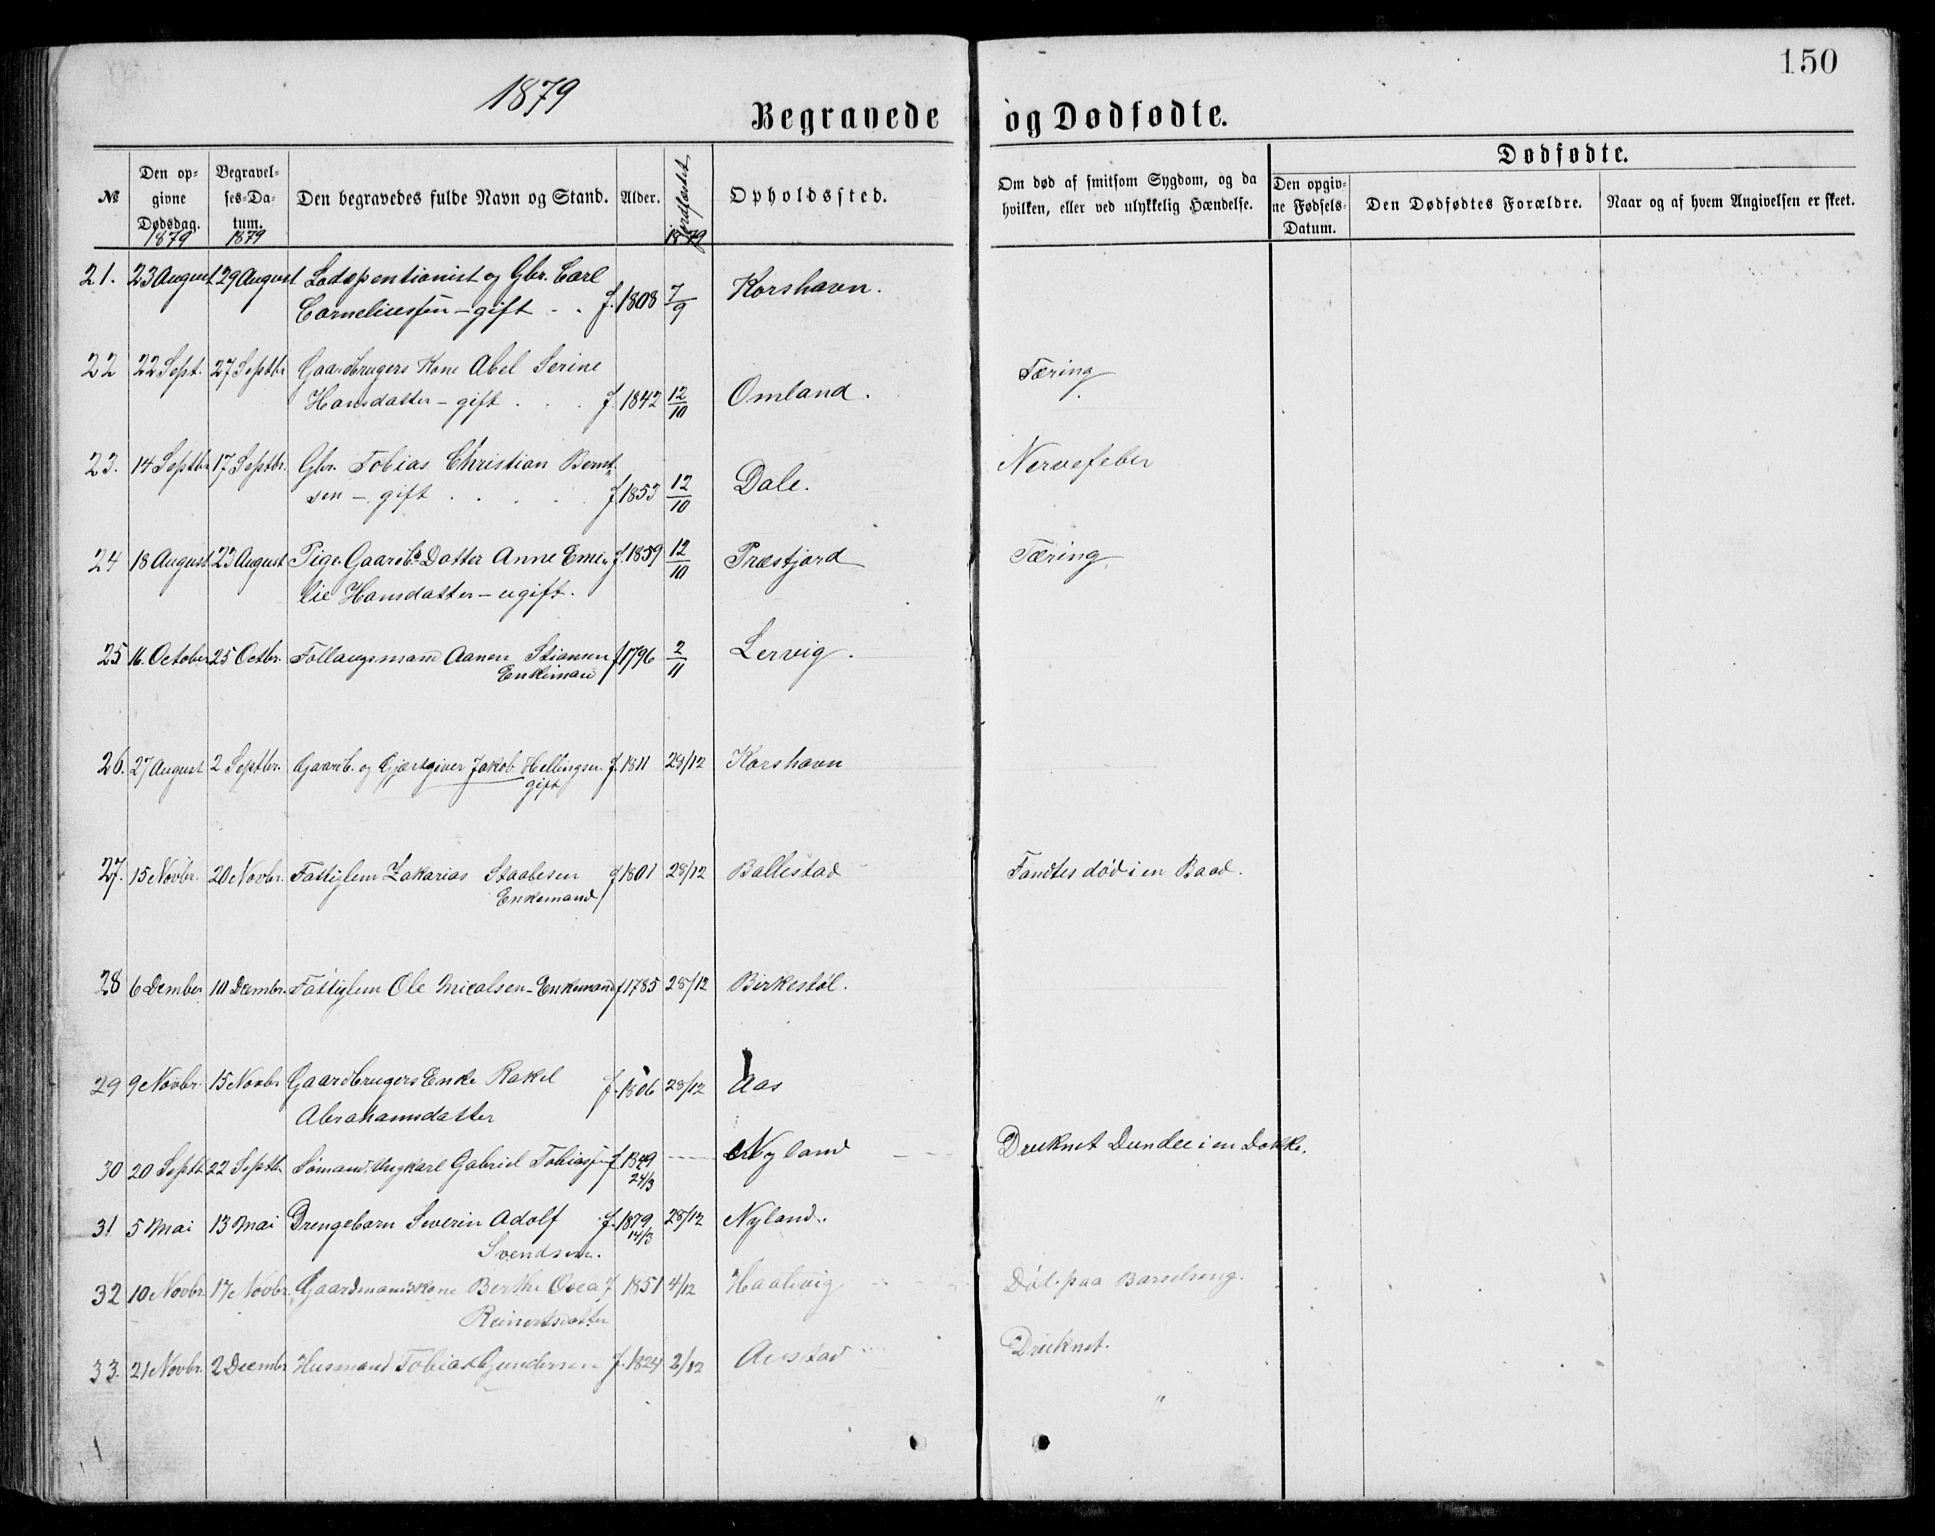 150
1879
Begravede og Dødfødte.
№
Den opgivne Dødsdag. 1879
Begravelses-Datum. 1879
Den begravedes fulde Navn og Stand.
Alder.
Jordfæstet 1879
Opholdssted.
Om død af smitsom Sygdom, og da hvilken, eller ved ulykkelig Hændelse.
Dødfødte.
Den opgivne Fødsels-Datum.
Den Dødfødtes Forældre.
Naar og af hvem Angivelsen er skeet.
21. 23 August 29 August Lodspentionist og Gbr. Carl
Corneliussen - gift . . f. 1808 7/9 Korshavn.
22 22 Sept. 27 Septbr Gaardbrugers Kone Abel Serine Tæring
Hansdatter - gift . . . f. 1842 12/10 Omland.
23. 14 Septbr 17 Septbr. Gbr. Tobias Christian Bernt- Nervefeber
sen - gift . . . . f 1853 12/10 Dale.
24 18 August 23 August Pige. Gaardb. Datter Anne Eme- f 1859 12/10 Præstjord Tæring
lie Hansdatter - ugift.
25 16. October 25 Octbr. Follaugsmand Aanen Stiansen f 1796 2/11 Lervig.
Enkemand
26. 27 August 2 Septbr. Gaardb. og Gjæstgiver Jakob Hellingsen. f. 1811 28/12 Korshavn
gift
27. 15 Novbr. 20 Novbr. Fattiglem Zakarias Staalesen f 1801 28/12 Ballestad Fandtes død i en Baad.
Enkemand
28 6 Dember 10 Decmbr. Fattiglem Ole Nicolsen - Enkemand f 1785 28/12 Birkestøl.
29 9 Novbr. 15 Novbr Gaardbrugers Enke Rakel f. 1806 28/12 Aas
Abrahamsdatter
30 20 Septb 22 Septb Sømand. Ungkarl Gabriel Tobiassen f. 1849 24/3 ---- Nyland Druknet Dundee i en Dokke.
31 5 Mai 13 Mai Drengebarn Severin Adolf f. 1879 14/3 28/12 Nyland.
Svendsen.
32 10 Novbr. 17 Novbr. Gaardmandskone Berthe Ovea f 1851 4/12 Haalevig Død paa Barselseng.
Reinertsdatter
33. 21 Novbr. 2 Decembr Husmand Tobias Gundersen f. 1824 2/12 Austad Druknet.